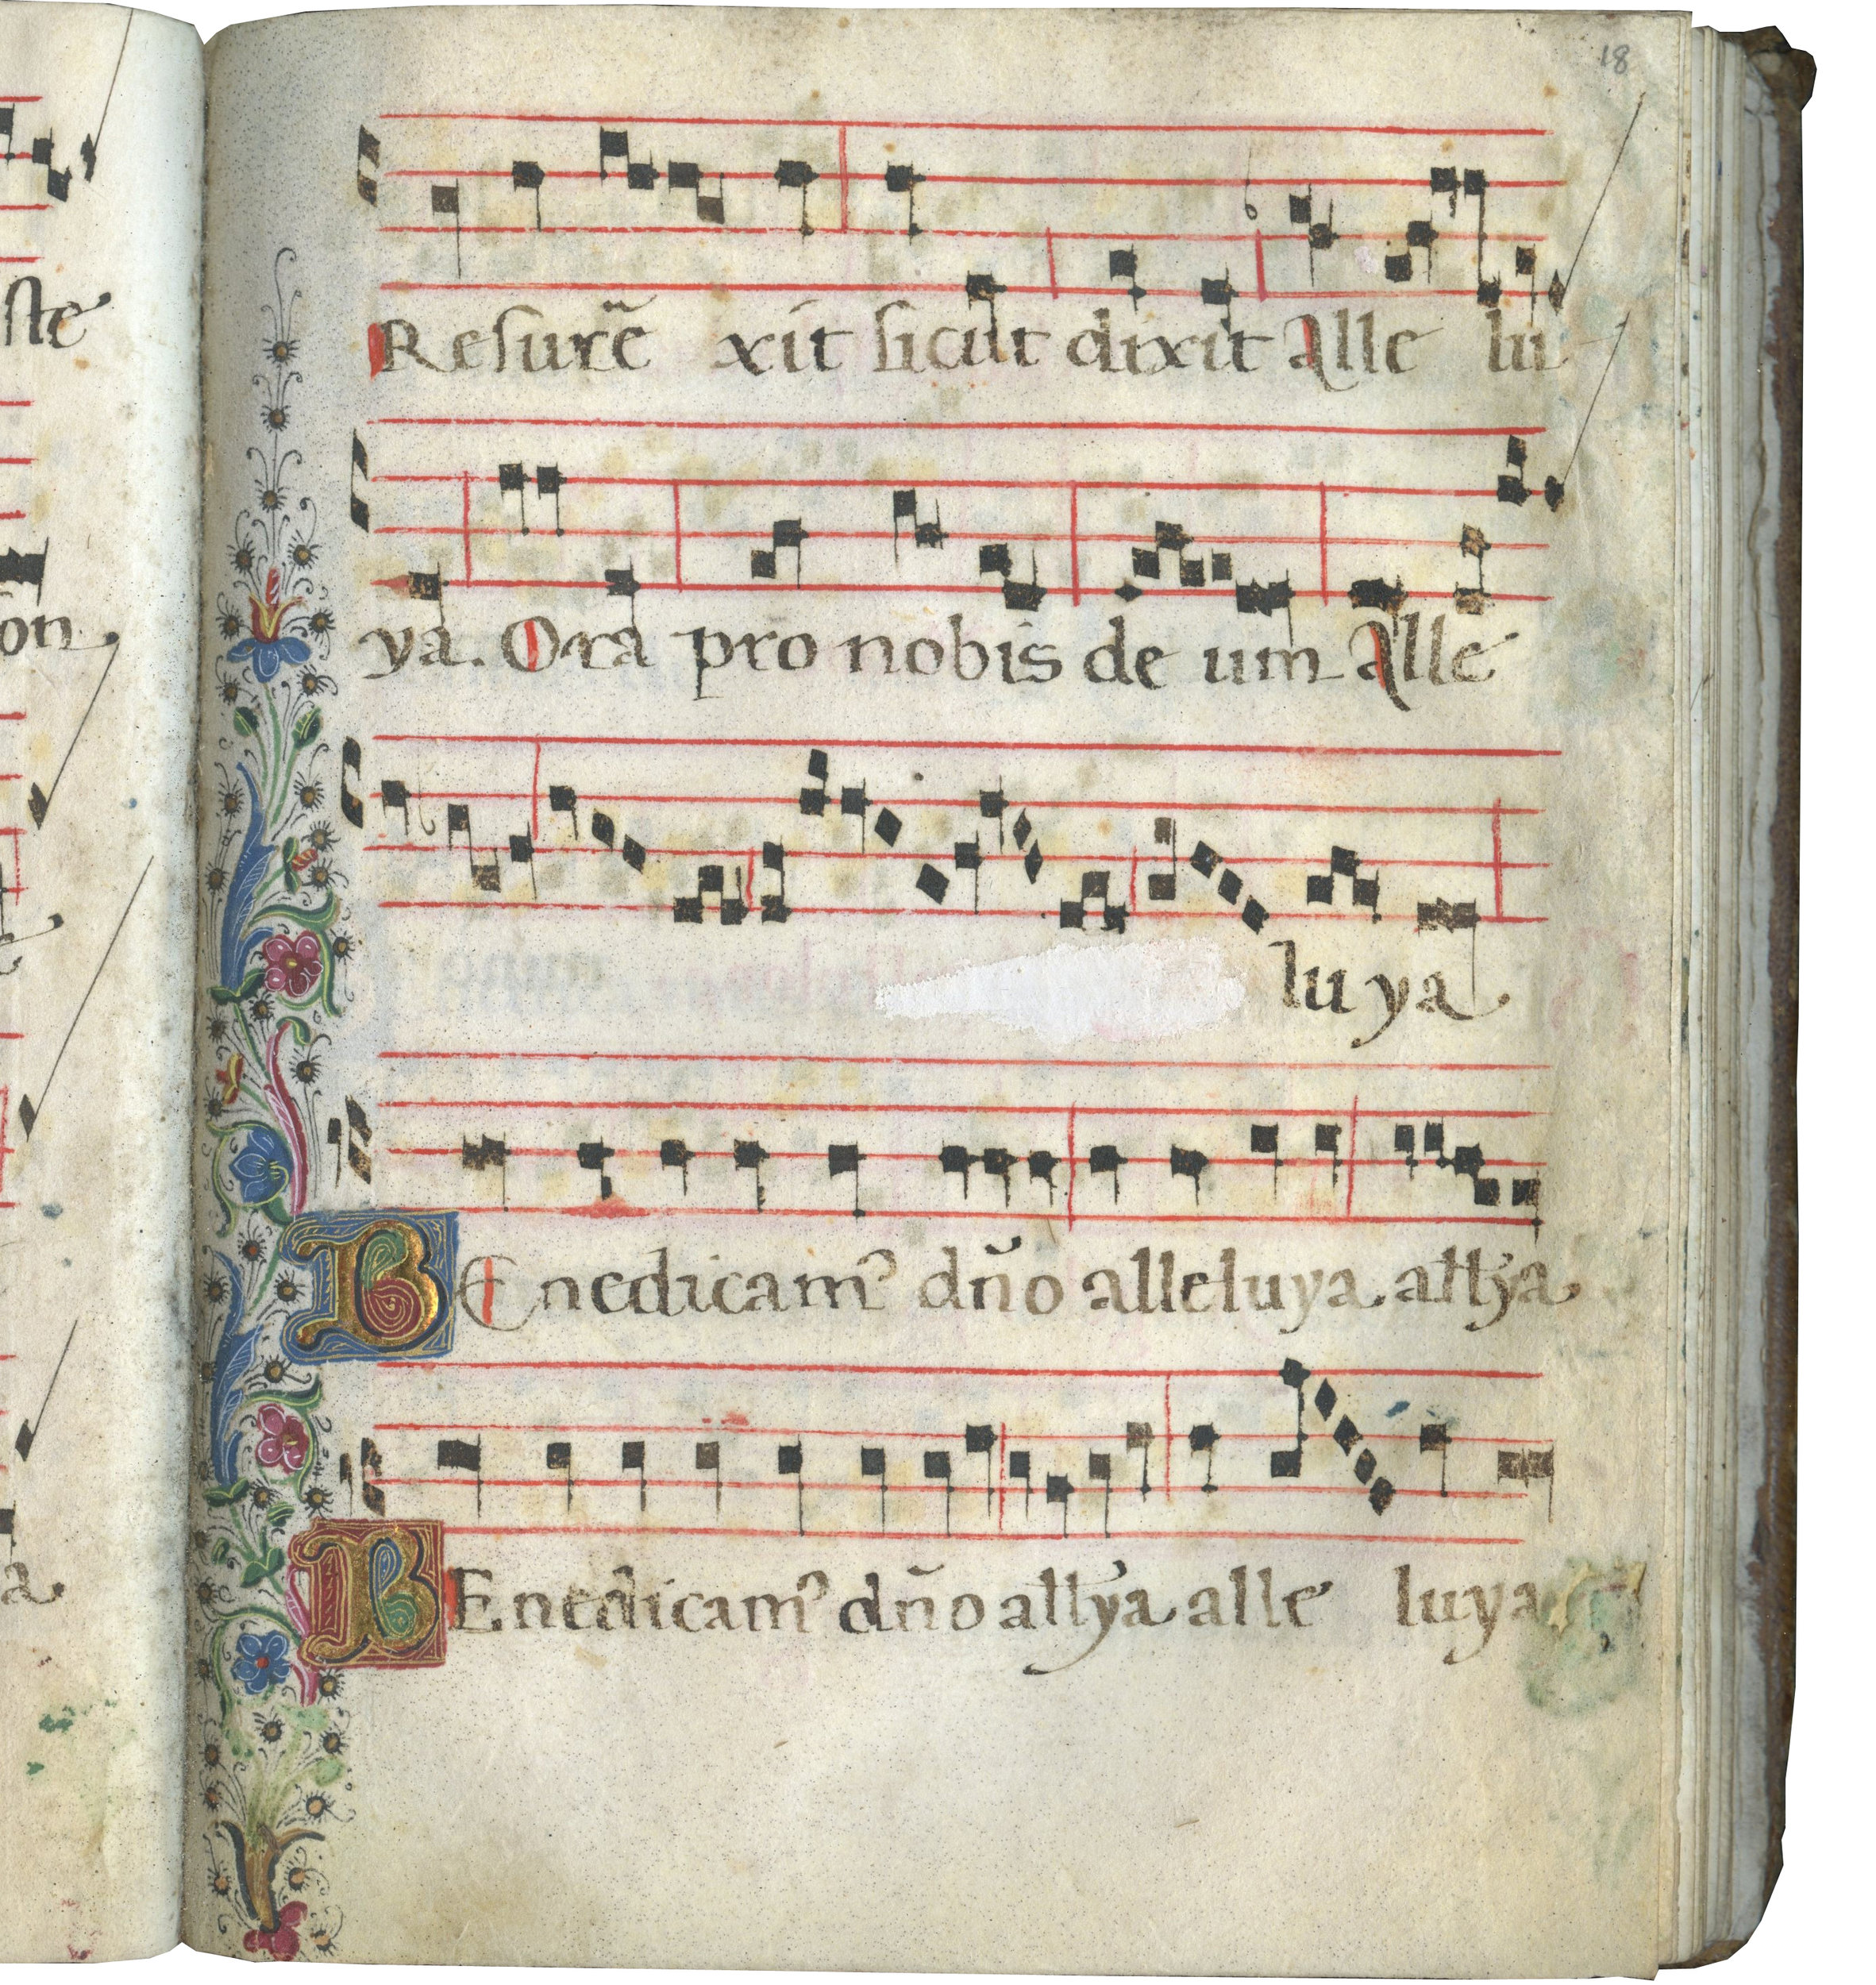 18
Resurrẽ xit sicut dixit Alle lu
ya. Ora pro nobis de um Alle
lu ya
BEnedicamꝰ dño alleluya alłya
BEnedicamꝰ dño alłya alle luya
ste
on
a